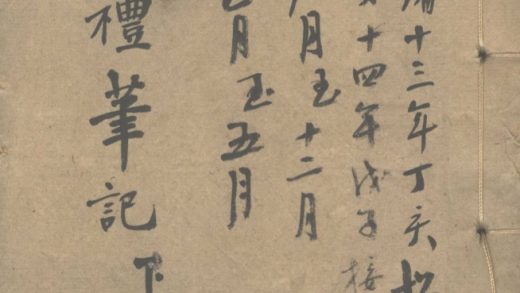 十三年丁亥
十四年戊子接
月至十二月
月至五月
禮筆記下